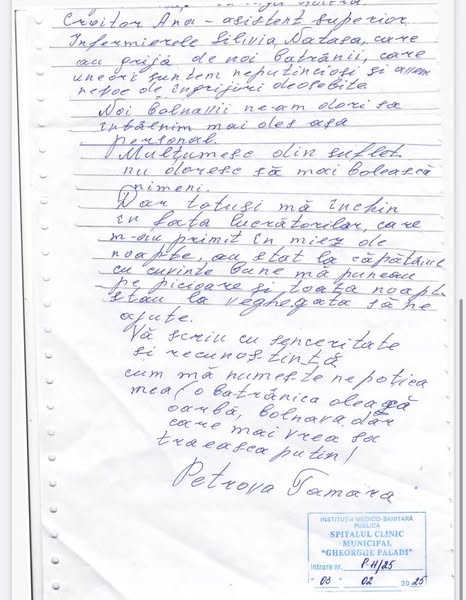 Croitor Ana - asistent superior
Infermierele Silivia, Natașa, care
au grijă de noi batrânii, care
uneori suntem neputincioși și avem
nevoe de îngrijiri deosebite
Noi bolnavii ne-am dori sa
întâlnim mai des așa
personal.
Multumesc din suflet
nu doresc să mai bolească
nimeni.
Dar totuși mă închin
în fața lucrătorilor, care
m-au primit în miez de
noapte, au stat la căpătâiul
cu cuvinte bune mă puneau
pe picioare și toată noapt
stau la veghe gata să ne
ajute.
Vă scriu cu senceritate
și recunoștință
cum mă numește nepoțica
mea (o batrânica oleagă
oarbă, bolnava, dar
care mai vrea sa
traeasca puțin!
Petrova Tamara
INSTITUȚIA MEDICO-SANITARĂ
PUBLICĂ
SPITALUL CLINIC
MUNICIPAL
"GHEORGHE PALADI"
Intrare nr. P-11/25
"03" 02 2025